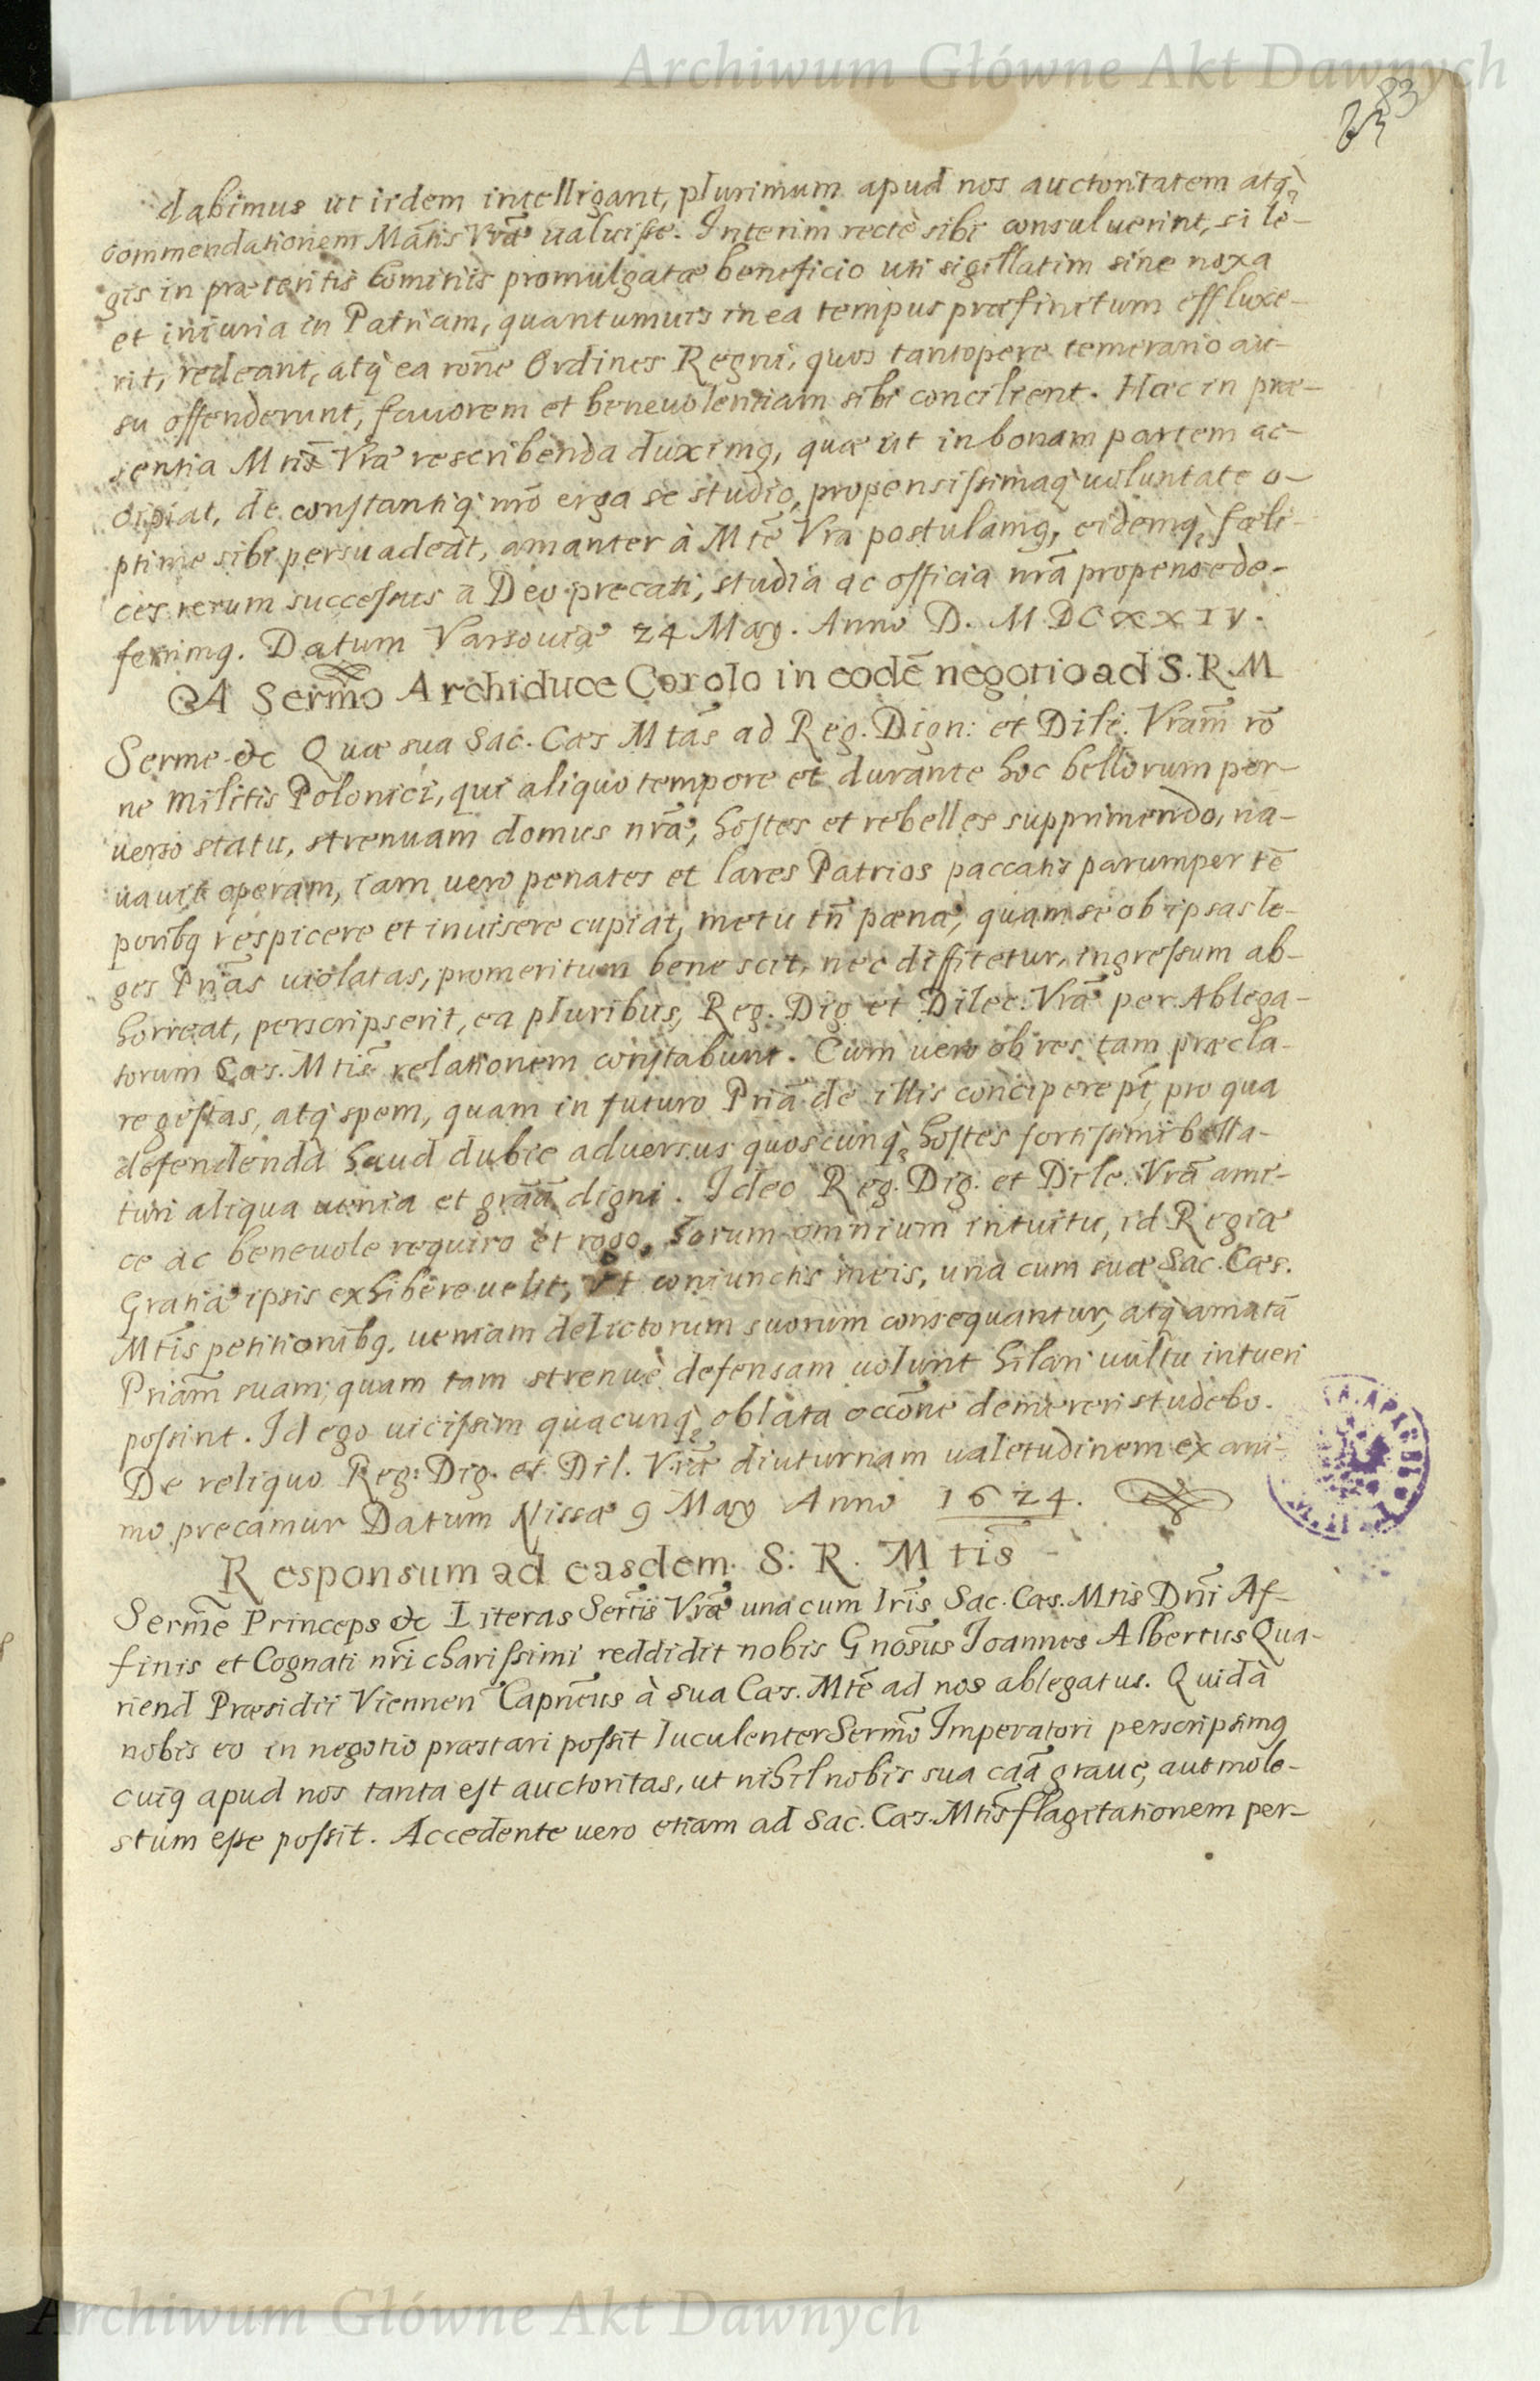 Archiwum Główne Akt Dawnych
83
dabimus ut iidem intelligant, plurimum apud nos auctoritatem atq̃
commendationem Mãtis Vrã ualuisse. Interim recte sibi consuluerint, si le-
gis in præteritis Comitiis promulgatæ beneficio uti sigillatim sine noxa
et iniuria in Patriam, quantumuis in ea tempus præfinitum effluxe-
rit, redeant, atq̃ ea rõne Ordines Regni, quos tantopere temerario au-
su offenderunt, fauorem et beneuolentiam sibi concilient. Hæc in præ-
sentia Mtis̃ Vræ rescribenda duximq, quæ ut in bonam partem ac-
cipiat, de constantiq̃ nrõ erga se studio, propensissimaq̃ uoluntate o-
ptime sibi persuadeat, amanter à Mtẽ Vra postulamq, eidemq̃ fœli-
ces rerum successus a Deo precati, studia ac officia nrã propense de-
ferimq. Datum Varsouiæ 24 Maÿ. Anno D. MDCXXIV.
A Serm̃o Archiduce Carolo in eodẽ negotio ad S.R.M
Serme &c Quæ sua Sac. Cæs Mtãs ad Reg. Dign: et Dile: Vram̃ rõ
ne Militis Polonici, qui aliquo tempore et durante hoc bellorum per-
uerso statu, strenuam domus nrã, hostes et rebelles supprimendo, na-
uauit operam, iam uero penates et lares Patrios paccatis parumper tẽ
poribq respicere et inuisere cupiat, metu tñ pænæ, quam se ob ipsas le-
ges Priãs uiolatas, promeritum bene scit, nec diffitetur, ingressum ab-
horreat, perscripserit, ea pluribus, Reg. Dig et Dilec: Vrã per Ablega-
torum Cæs. Mtis̃ relationem constabunt. Cum uero ob res tam præcla-
re gestas, atq̃ spem, quam in futuro Priã de illis concipere pt̃, pro qua
defendenda haud dubie aduersus quoscunq̃ hostes fortissimi bella-
turi aliqua uenia et grãã digni. Ideo Reg. Dig. et Dile. Vrã ami-
ce ac beneuole requiro et rogo, horum omnium intuitu, id Regiæ
Gratiæ ipsis exhibere uelit, ut coniunctis meis, una cum suæ Sac. Cæs.
Mtis̃ petitionibq, ueniam delictorum suorum consequantur, atq̃ amatã
Priam̃ suam, quam tam strenuè defensam uolunt hilari uultu intueri
possint. Id ego uicissim quacunq̃ oblata occõne demereri studebo.
De reliquo Reg: Dig. et Dil. Vræ diuturnam ualetudinem ex ani-
mo precamur Datum Nissæ 9 Maÿ Anno 1624.
Responsum ad easdem S: R. Mtis̃
Serm̃e Princeps &c Literas Sertis̃ Vræ una cum lris̃ Sac. Cæs. Mtis Dnĩ Af-
finis et Cognati nrĩ charissimi reddidit nobis Gnosus̃ Joannes Albertus Qua-
riend Præsidii Viennen̄ Capneus̃ à Sua Cæs. Mtẽ ad nos ablegatus. Quid à
nobis eo in negotio præstari possit luculenter Serm̃o Imperatori perscripsimq
cuiq apud nos tanta est auctoritas, ut nihil nobis sua cãã graue, aut mole-
stum esse possit. Accedente uero etiam ad Sac. Cæs. Mtis̃ flagitationem per-
Archiwum Główne Akt Dawnych